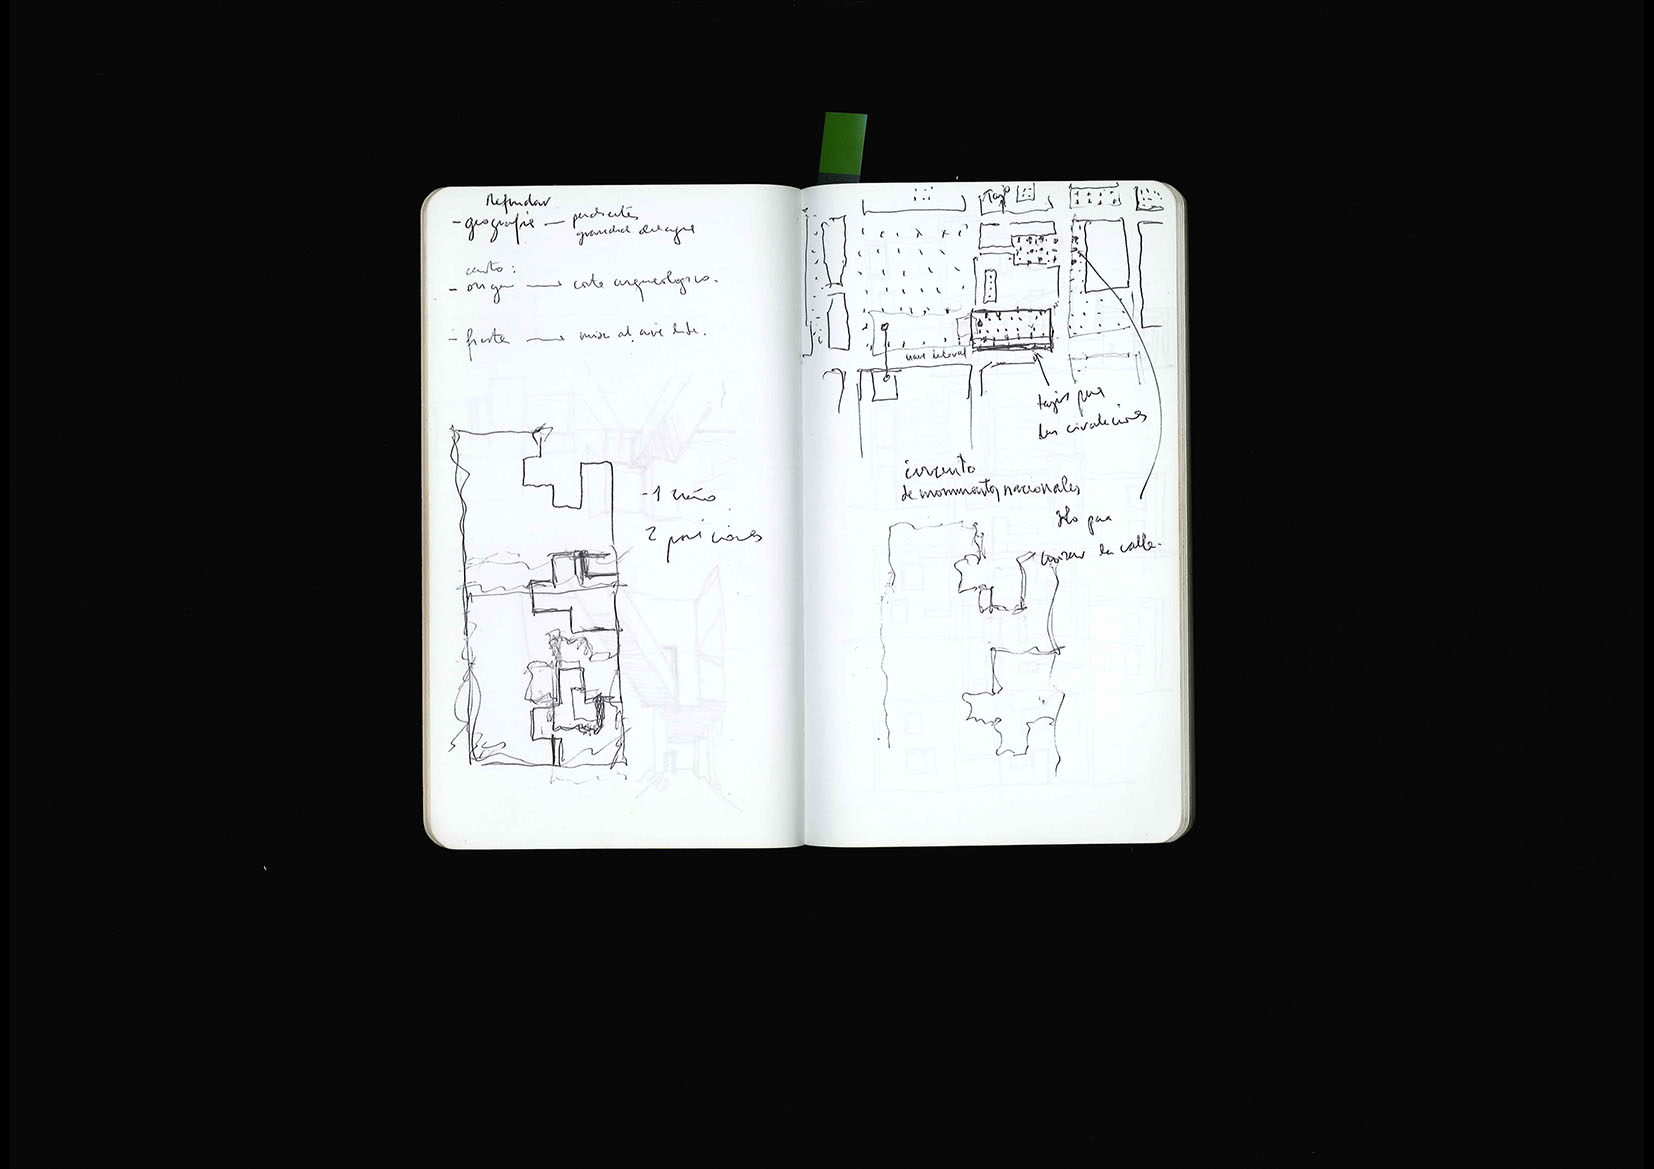 Refundar
- geografía — pendientes
gravedad del agua
canto:
- origen → corte arqueológico.
- fiesta → misa al aire libre.
- 1 
2 posiciones
Tajo
nave lateral
tajos para
las circulaciones
circuito
de monumentos nacionales
sólo para
cruzar la calle.